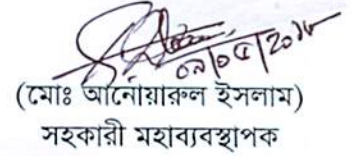 ০৯/০৫/২০১৮
(মোঃ আনোয়ারুল ইসলাম)
সহকারী মহাব্যবস্থাপক